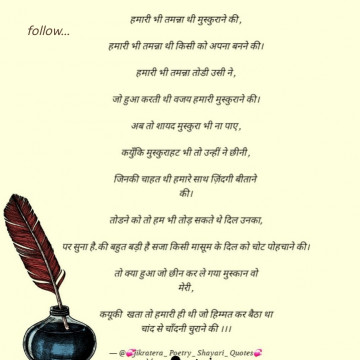 हमारी भी तमन्ना थी मुस्कुराने की ,
follow...
हमारी भी तमन्ना थी किसी को अपना बनने की।
हमारी भी तमन्ना तोडी उसी ने ,
जो हुआ करती थी वजय हमारी मुस्कुराने की।
अब तो शायद मुस्कुरा भी ना पाए ,
क्युँकि मुस्कुराहट भी तो उन्हीं ने छीनी ,
जिनकी चाहत थी हमारे साथ ज़िंदगी बीताने
की।
तोडने को तो हम भी तोड़ सकते थे दिल उनका,
पर सुना है.की बहुत बड़ी है सजा किसी मासूम के दिल को चोट पोहचाने की।
तो क्या हुआ जो छीन कर ले गया मुस्कान वो
मेरी ,
कयूकी खता तो हमारी ही थी जो हिम्मत कर बैठा था
चांद से चाँदनी चुराने की ।।।
Poetry_ Shayari_ Quotes